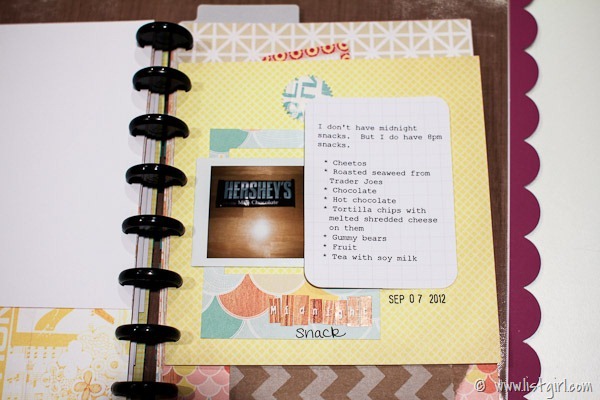 I don't have midnight
snacks. But I do have 8pm
snacks.
* Cheetos
* Roasted seaweed from
Trader Joes
* Chocolate
* Hot chocolate
* Tortilla chips with
melted shredded cheese
on them
* Gummy bears
* Fruit
* Tea with soy milk
HERSHEY'S
Milk Chocolate
SEP 07 2012
Midnight
snack
© www.listgirl.com